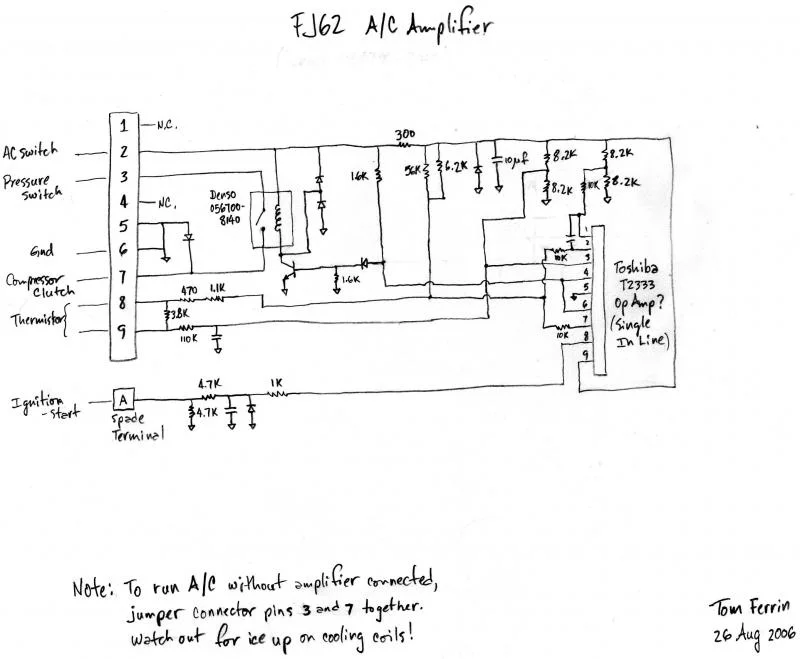 FJ62 A/C Amplifier
1 N.C.
AC switch
2
300
Pressure
switch
3
4 N.C.
5
Gnd
6
Compressor
Clutch
7
Thermistor
8
9
Denso
056700-
8140
1.6K
56K
6.2K
10µf
8.2K
8.2K
8.2K
10K
8.2K
1.6K
470
1.1K
3.8K
110K
10K
10K
1
2
3
4
5
6
7
8
9
Toshiba
T2333
Op Amp?
(Single
In Line)
Ignition
-start
A
Spade
Terminal
4.7K
4.7K
1K
Note: To run A/C without amplifier connected,
jumper connector pins 3 and 7 together.
Watch out for ice up on cooling coils!
Tom Ferrin
26 Aug 2006